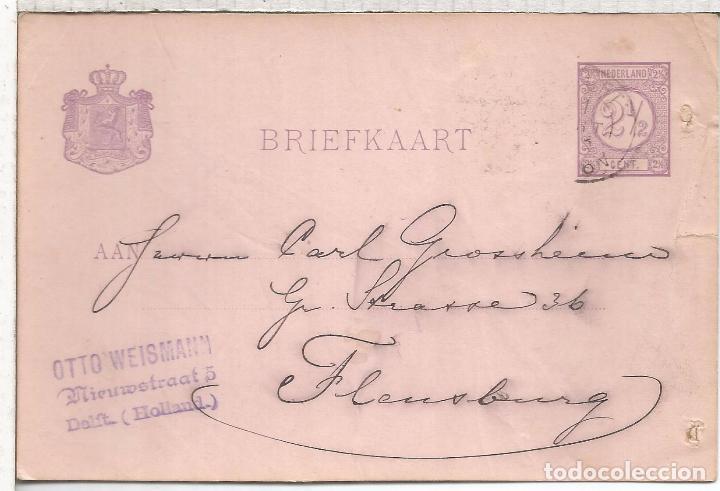 NEDERLAND
2½
CENT.
BRIEFKAART
AAN Herrn Carl Grossheim
Gr. Strasse 36
Flensburg
OTTO WEISMANN
Nieuwstraat 5
Delft. (Holland.)
todocoleccion